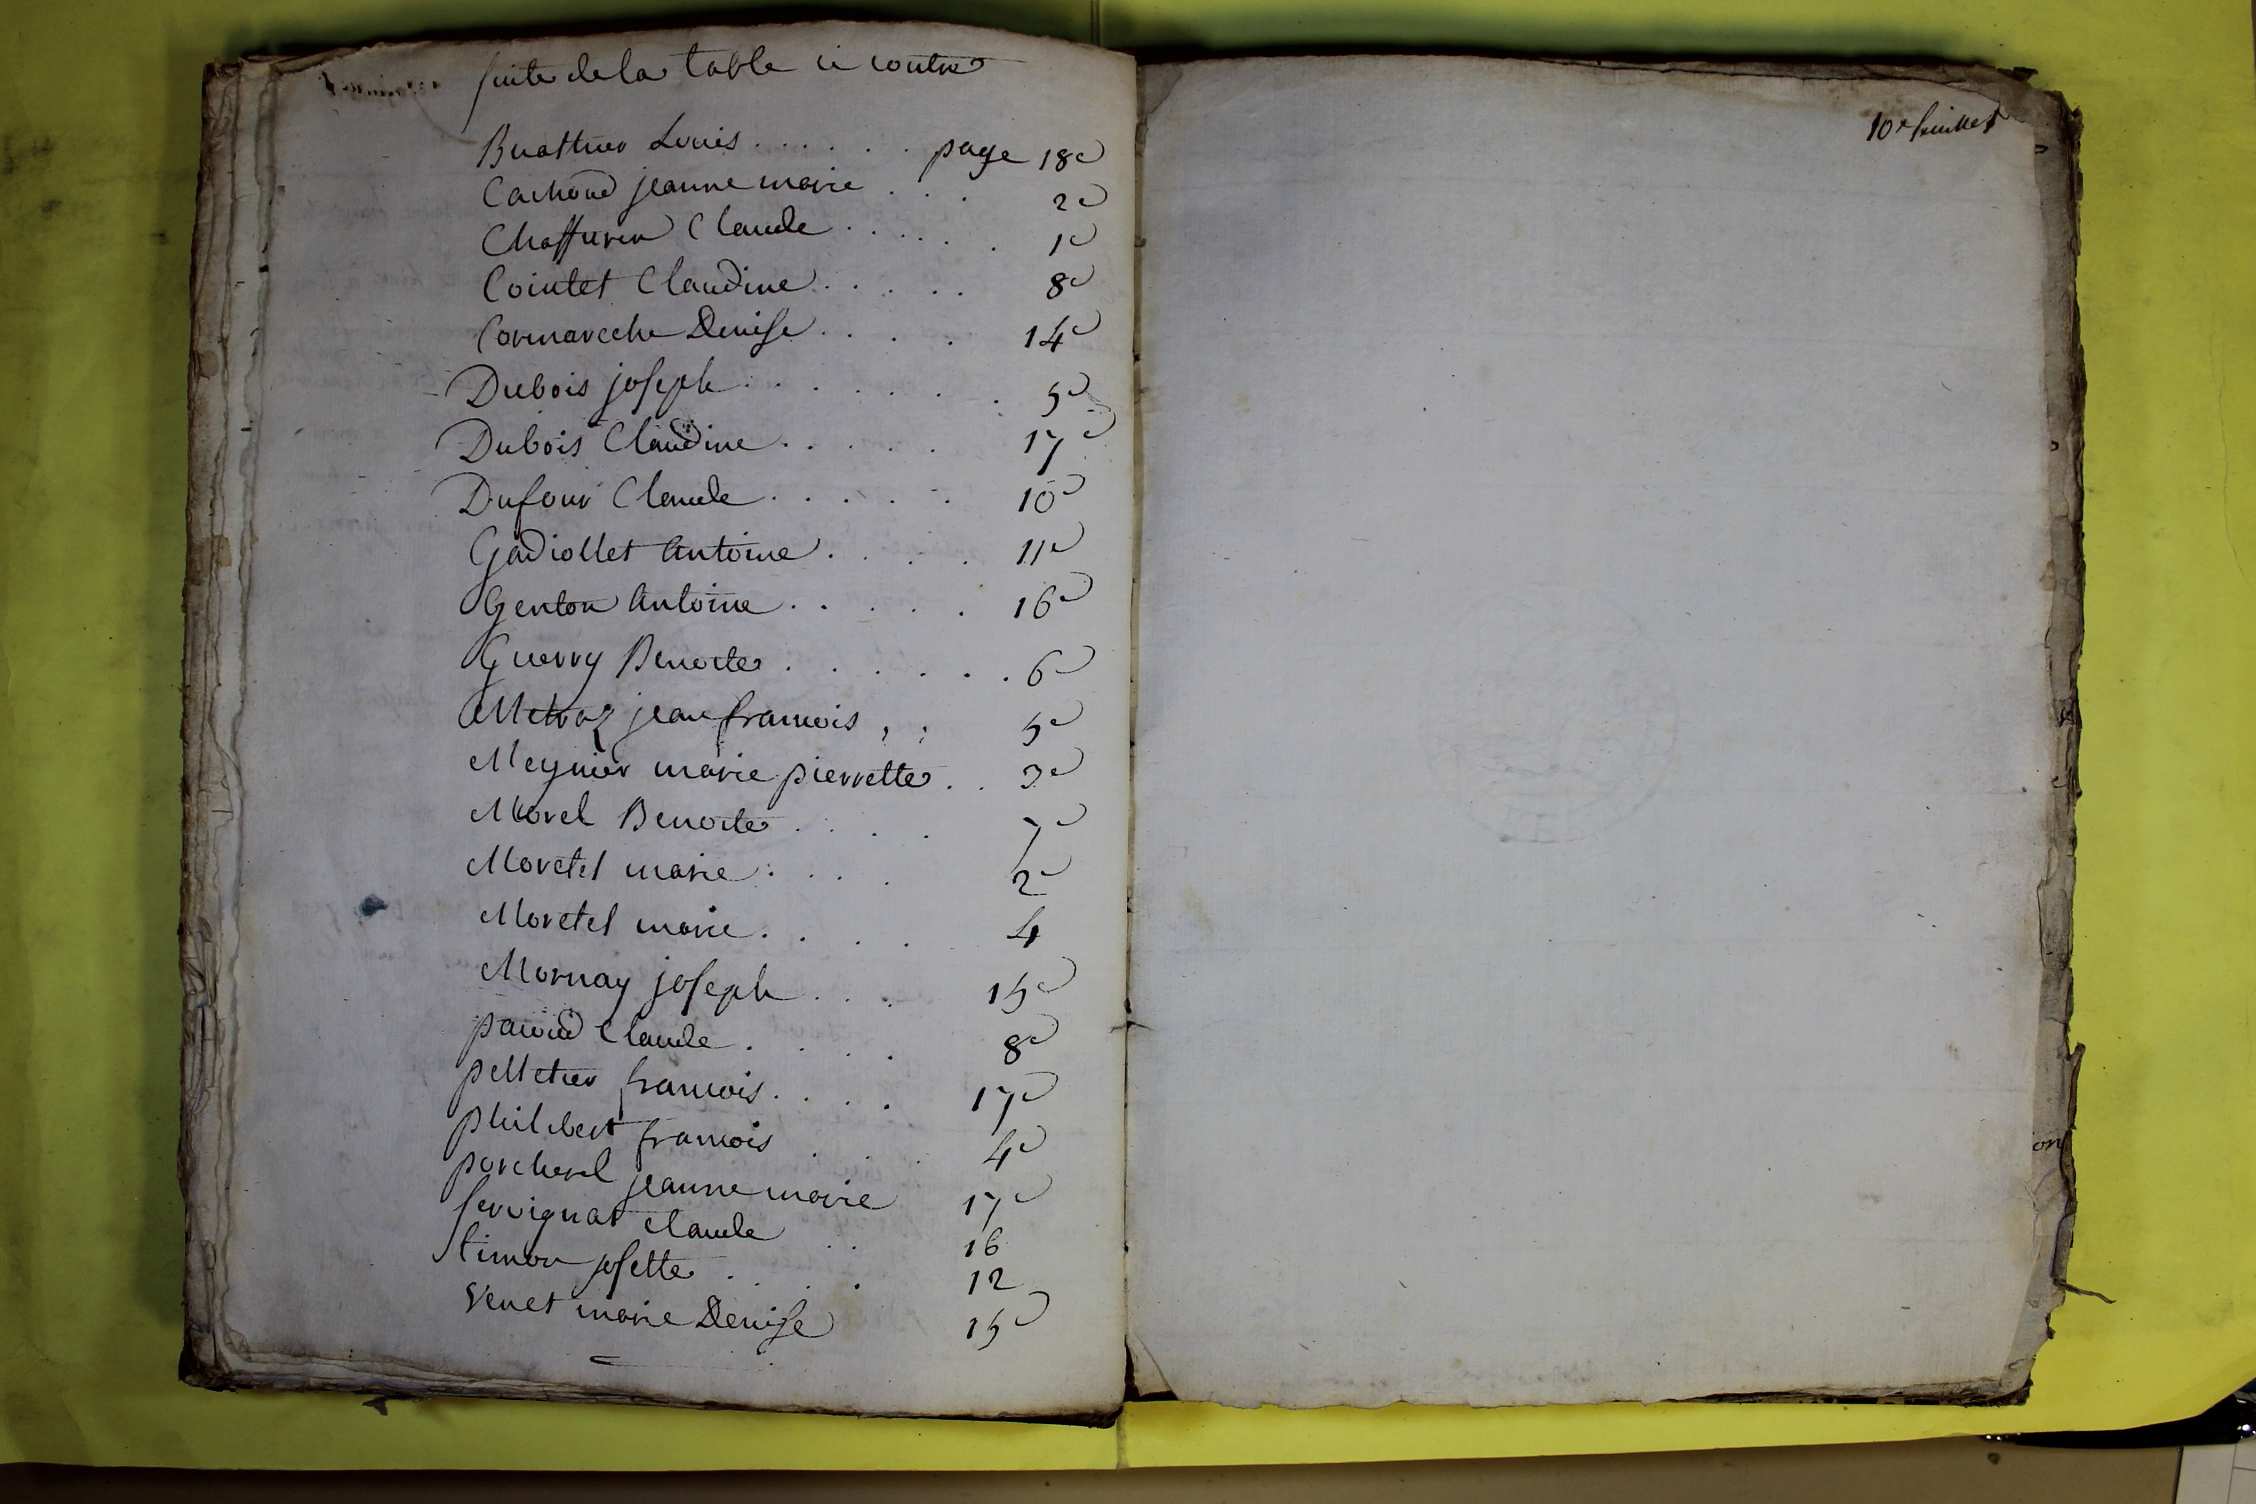 suite de la table ci contre
Buathier Louis . . . . . . page 18e
Cachoud jeanne marie . . . 2e
Chaffurin Claude . . . . . . 1e
Cointet Claudine . . . . . 8e
Cormareche Denise . . . . 14e
Dubois joseph . . . . . . . 5e
Dubois Claudine . . . . . 17e
Dufour Claude . . . . . 10e
Gadiollet Antoine . . . . 11e
Genton Antoine . . . . . 16e
Guerry Benoite . . . . . . 6e
Metraz jean francois , , 5e
Meynier marie pierrette . . 3e
Morel Benoite . . . . 7e
Moretel marie . . . . 2e
Moretel marie . . . . 4
Mornay joseph . . . 15e
pauid Claude . . . . 8e
pelletier francois . . . . 17e
philibert francois . . . 4e
porcherel jeanne marie 17e
servignat claude . . 16
timon josette . . . . 12
venet marie Denise 15e
10e feuillet
on